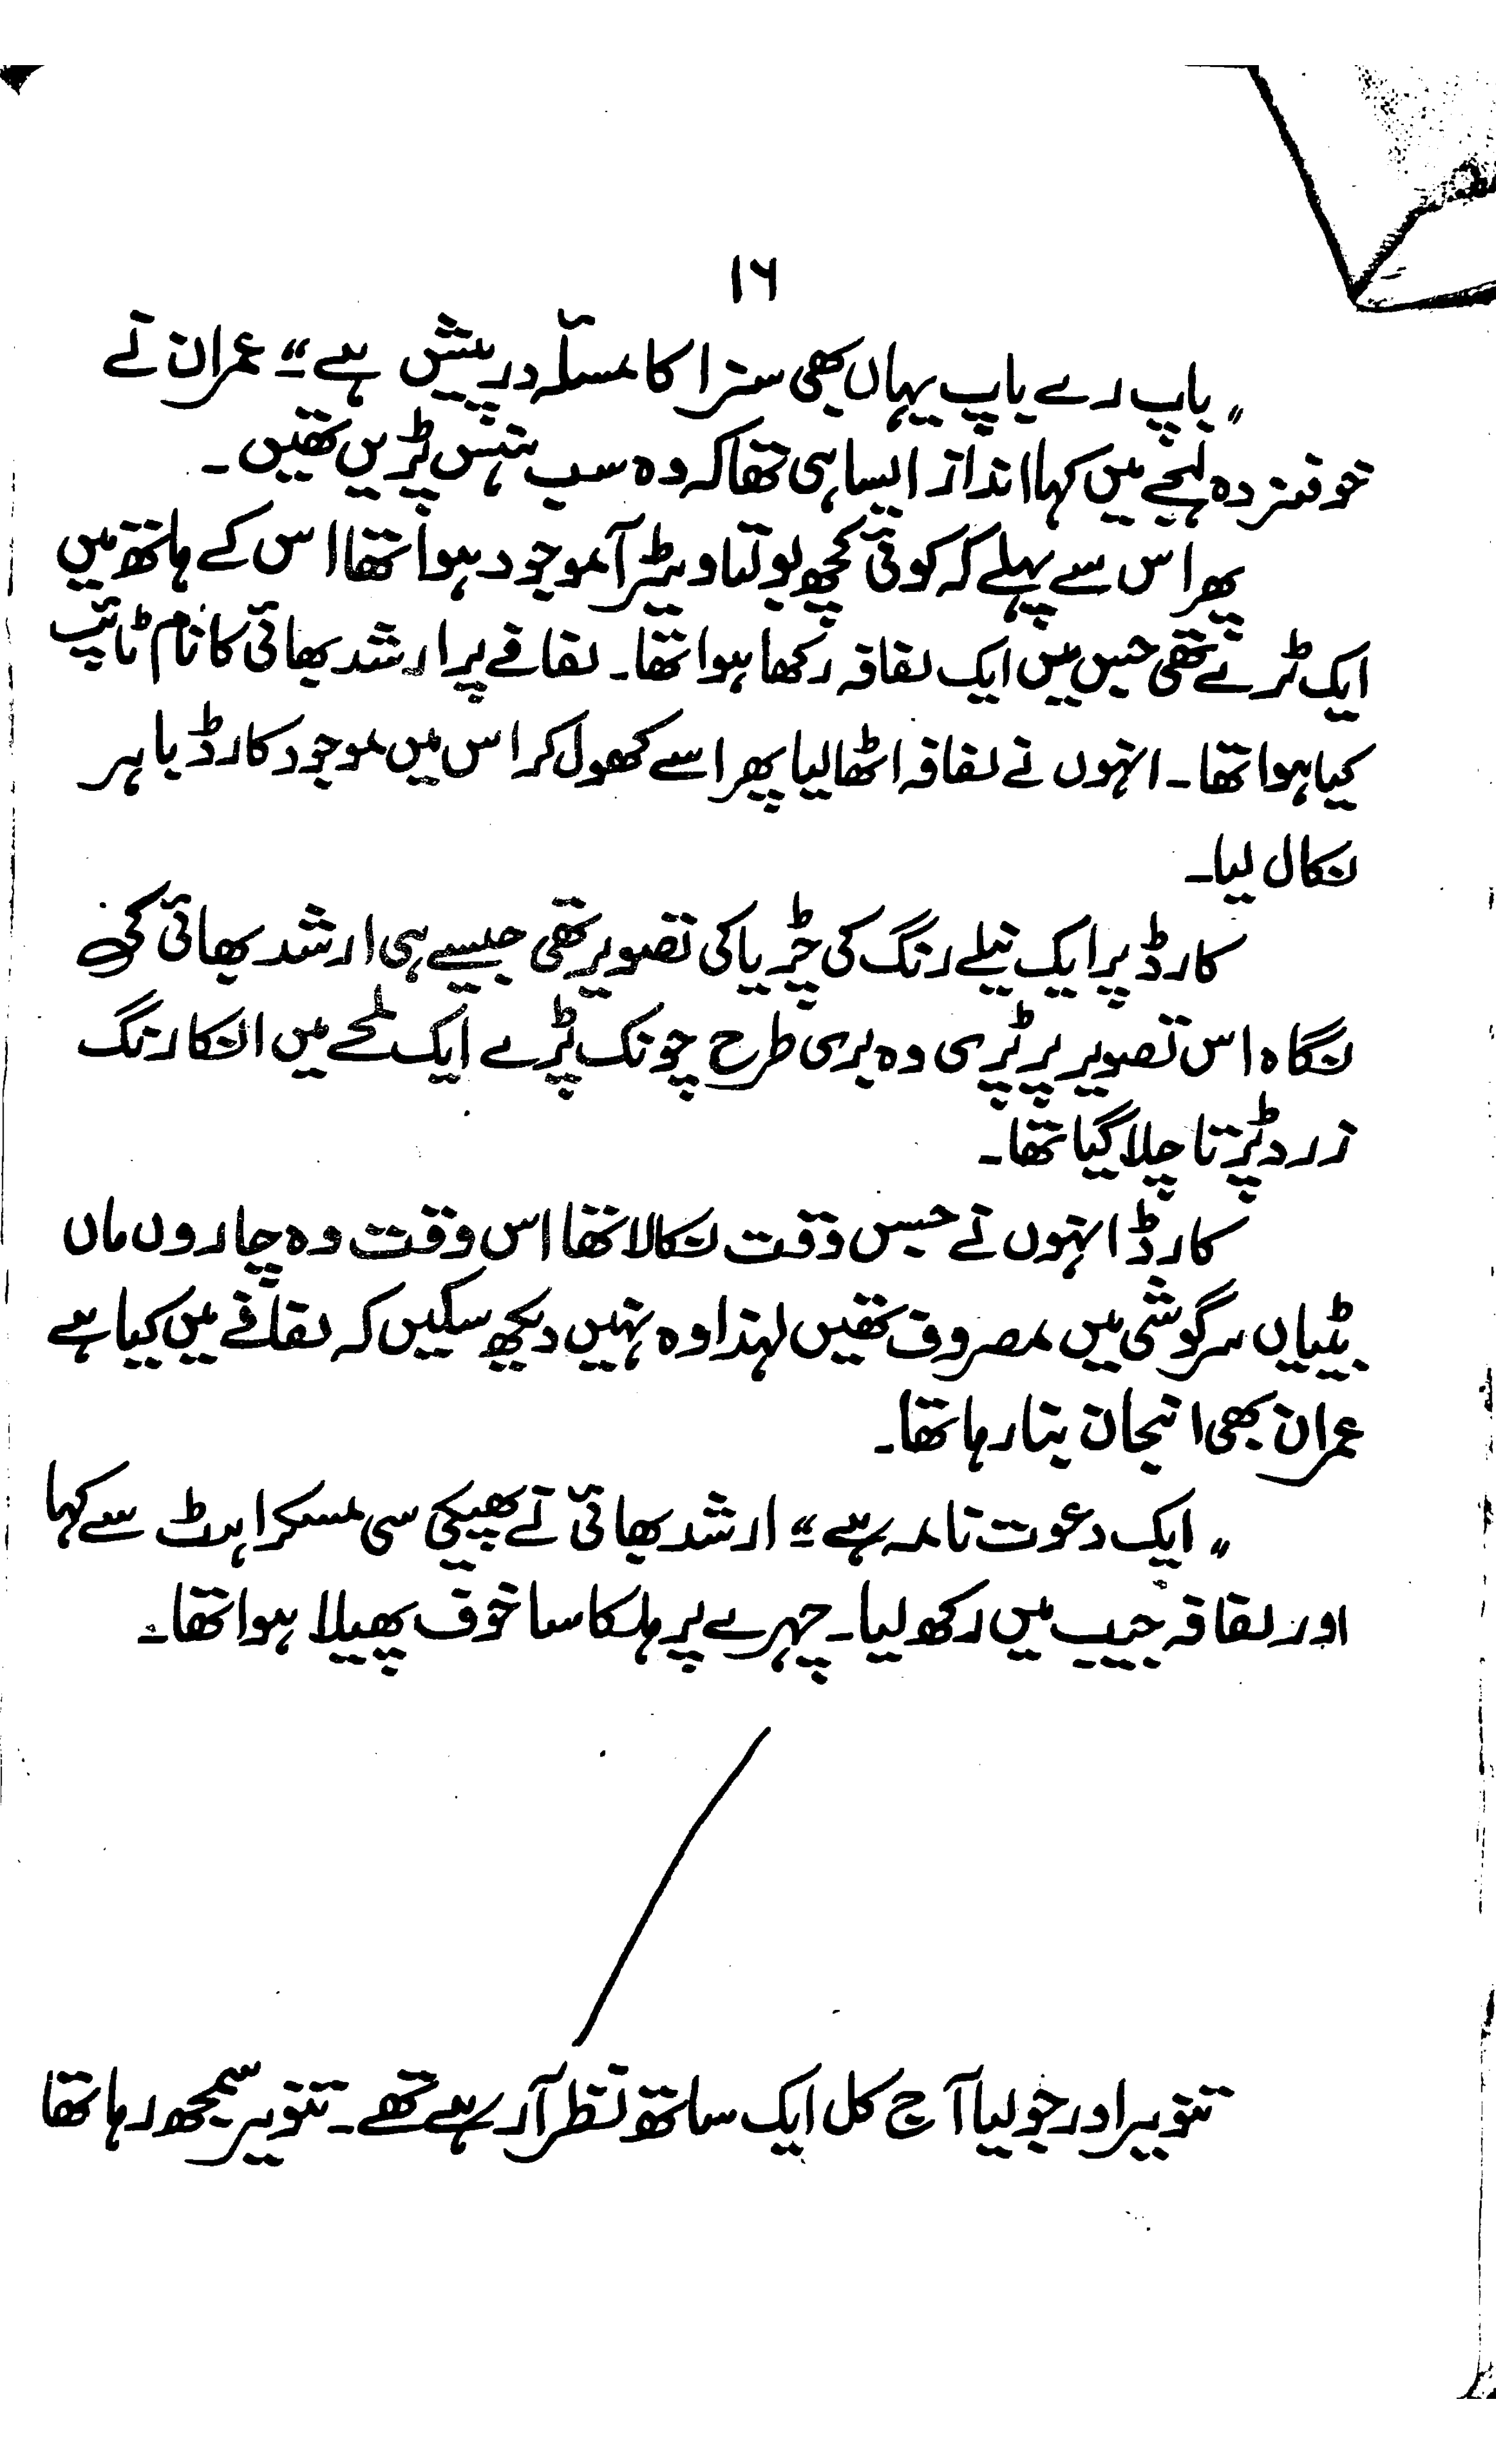 ۱۶
"باپ رے باپ یہاں بھی سزا کا مسئلہ درپیش ہے" عمران نے
خوفزدہ لہجے میں کہا انداز ایسا ہی تھا کہ وہ سب ہنس پڑیں تھیں۔
پھر اس سے پہلے کہ کوئی کچھ بولتا ویٹر آموجود ہوا تھا اس کے ہاتھ میں
ایک ٹرے تھی جس میں ایک لفافہ رکھا ہوا تھا۔ لفافے پر ارشد بھائی کا نام ٹائپ
کیا ہوا تھا۔ انہوں نے لفافہ اٹھا لیا پھر اسے کھول کر اس میں موجود کارڈ باہر
نکال لیا۔
کارڈ پر ایک نیلے رنگ کی چڑیا کی تصویر تھی جیسے ہی ارشد بھائی کی
نگاہ اس تصویر پر پڑی وہ بری طرح چونک پڑے ایک لمحے میں انکا رنگ
زرد پڑتا چلا گیا تھا۔
کارڈ انہوں نے جس وقت نکالا تھا اس وقت وہ چاروں ماں
بیٹیاں سرگوشی میں مصروف تھیں لہذا وہ نہیں دیکھ سکیں کہ لفافے میں کیا ہے
عمران بھی انجان بنا رہا تھا۔
"ایک دعوت نامہ ہے" ارشد بھائی نے پھیکی سی مسکراہٹ سے کہا
اور لفافہ جیب میں رکھ لیا۔ چہرے پر ہلکا سا خوف پھیلا ہوا تھا۔
تنویر اور جولیا آج کل ایک ساتھ نظر آ رہے تھے۔ تنویر سمجھ رہا تھا